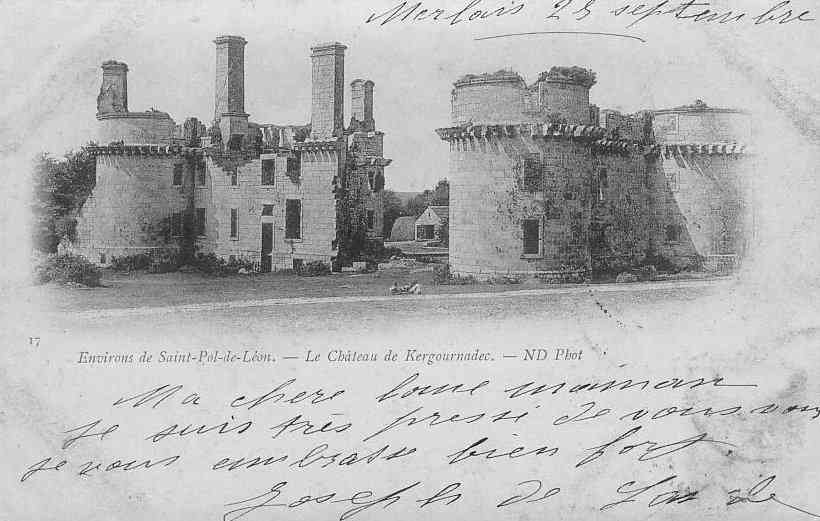 Merlais 23 septembre
17
Environs de Saint-Pol-de-Léon. — Le Château de Kergournadec. — ND Phot
Ma chere bone maman
je suis très pressé de vous
je vous embrasse bien fort
Joseph de